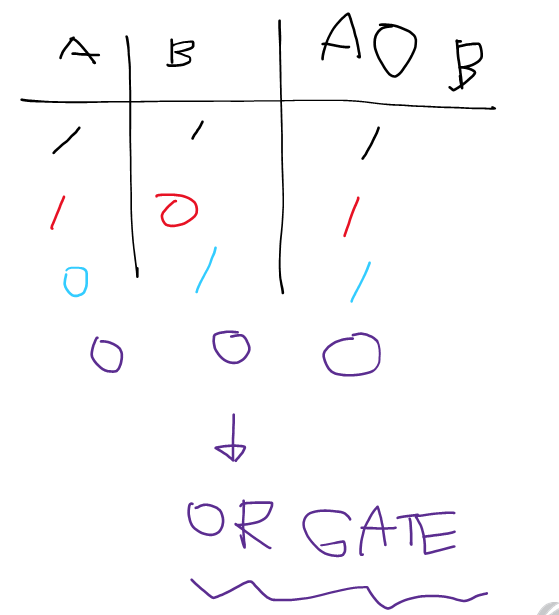 A B A O B
1 1 1
1 0 1
0 1 1
0 0 0
OR GATE